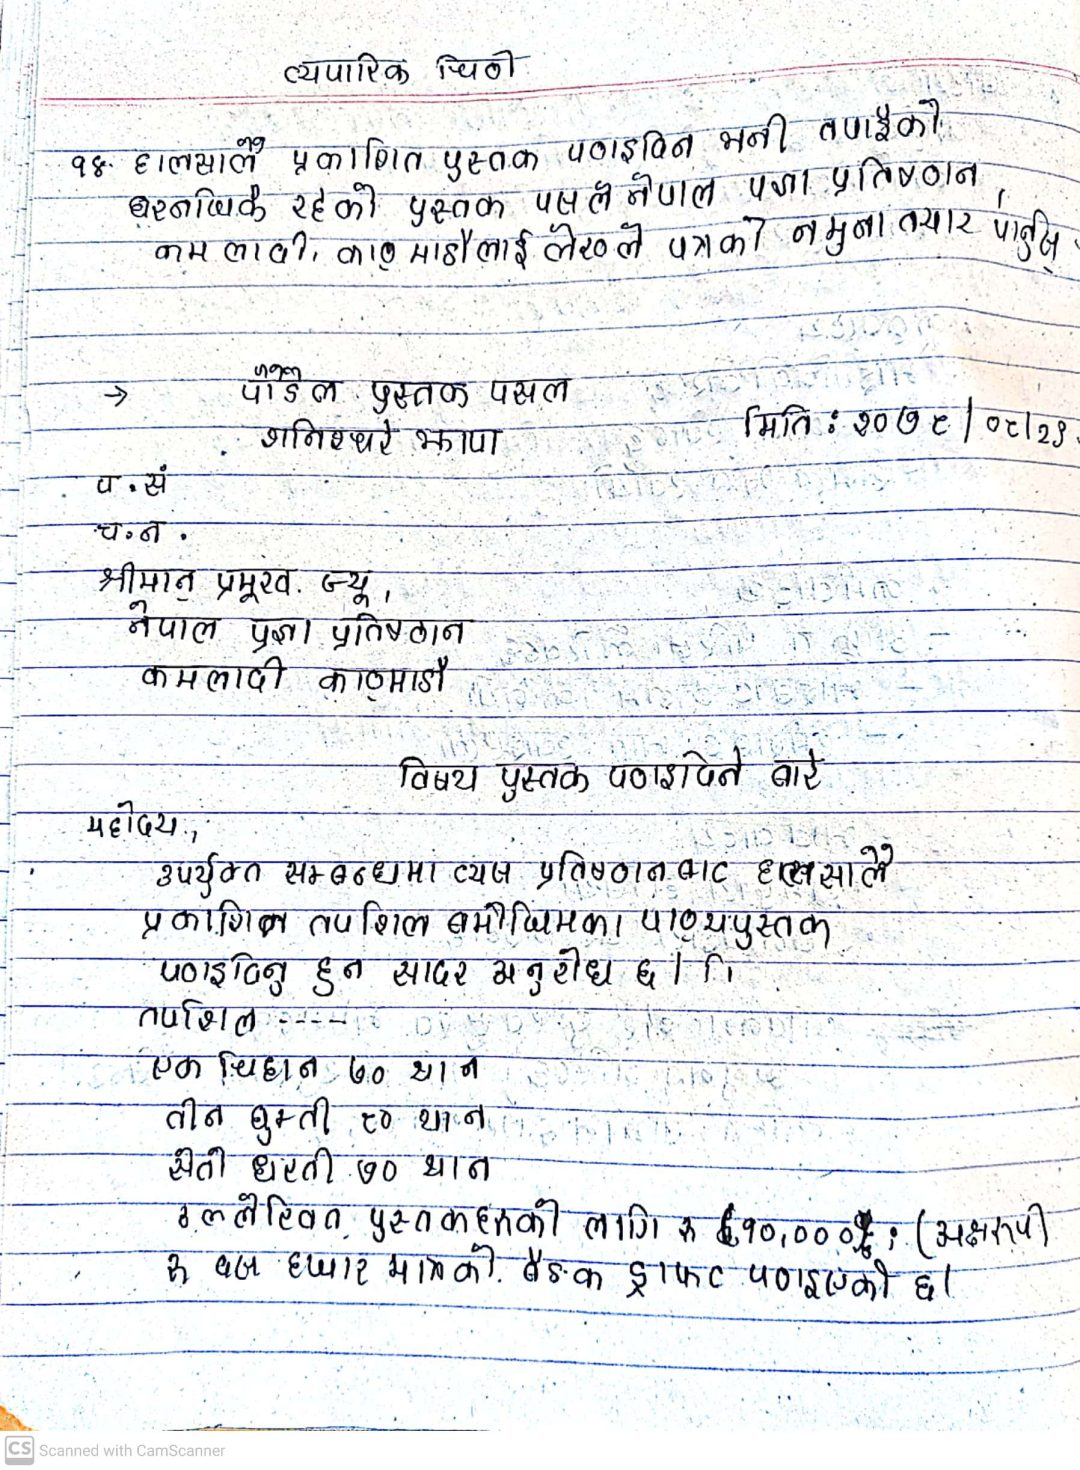 व्यपारिक चिठी
१४. हालसालै प्रकाशित पुस्तक पठाइदिन भनी तपाईको
घरनजिकै रहेको पुस्तक पसलले नेपाल प्रज्ञा प्रतिष्ठान,
कमलादी, काठमाडौंलाई लेख्ने पत्रको नमुना तयार पार्नुहोस्
→ पौडेल पुस्तक पसल
शनिश्चरे झापा
मिति : २०७९/०८/२१
प.सं
च.न.
श्रीमान् प्रमूख. ज्यू,
नेपाल प्रज्ञा प्रतिष्ठान
कमलादी काठमाडौ
विषय पुस्तक पठाइदिने बारे
महोदय.,
उपर्युक्त सम्बन्धमा त्यस प्रतिष्ठानबाट हालसालै
प्रकाशित तपशिल बमोजिमका पाठ्यपुस्तक
पठाइदिनु हुन सादर अनुरोध छ।
तपशिल :----
एक चिहान ७० थान
तीन घुम्ती ८० थान
सेतो धरती ७० थान
उल्लेखित पुस्तकहरुको लागि रु १०,००० (अक्षरुपी
रु दस हजार मात्रको. बैङक ड्राफट पठाइएको छ।
CS Scanned with CamScanner